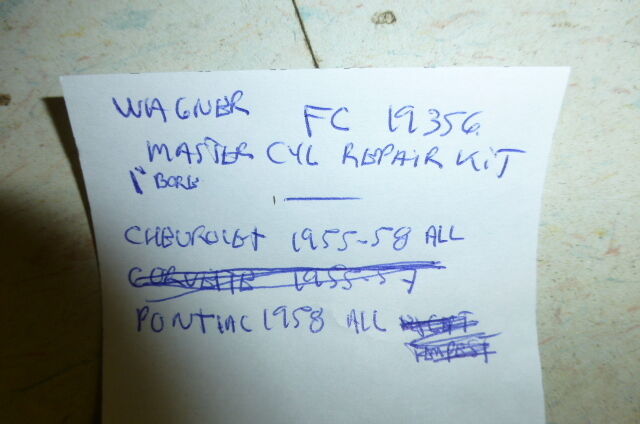 WAGNER FC 19356
MASTER CYL REPAIR KIT
1" BORE
CHEVROLET 1955-58 ALL
CORVETTE 1955-57
PONTIAC 1958 ALL EXCEPT
TEMPEST